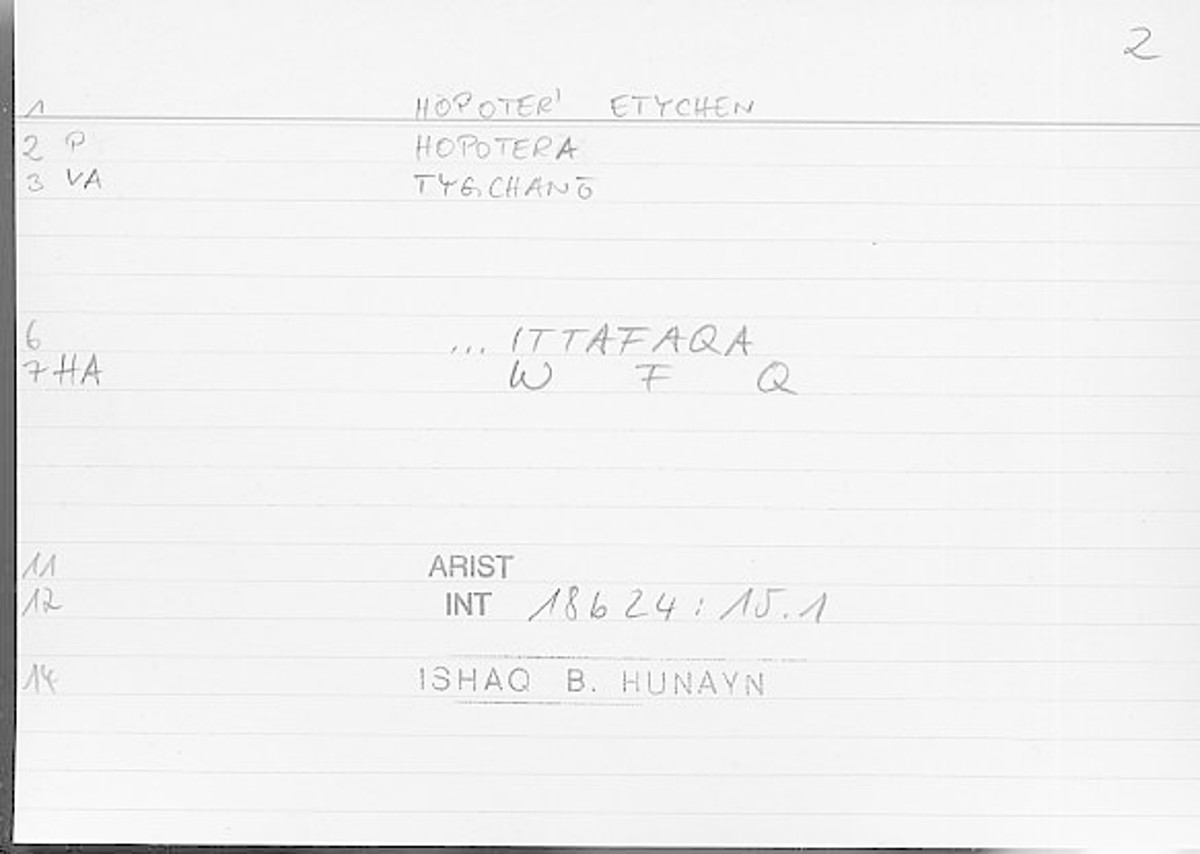 2
1 HOPOTER' ETYCHEN
2 P HOPOTERA
3 VA TYGCHANŌ
6 ... ITTAFAQA
7 HA W F Q
11 ARIST
12 INT 18b 24 : 15.1
14 ISHAQ B. HUNAYN